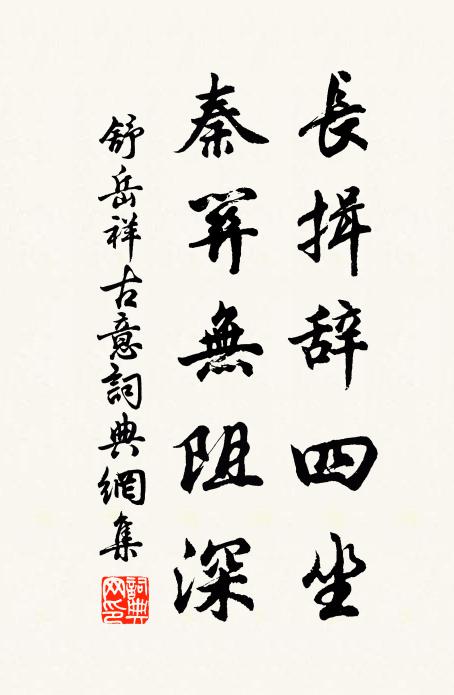 長揖辞四坐
秦幷無阻深
舒岳祥古意詞典網集
詞典网印